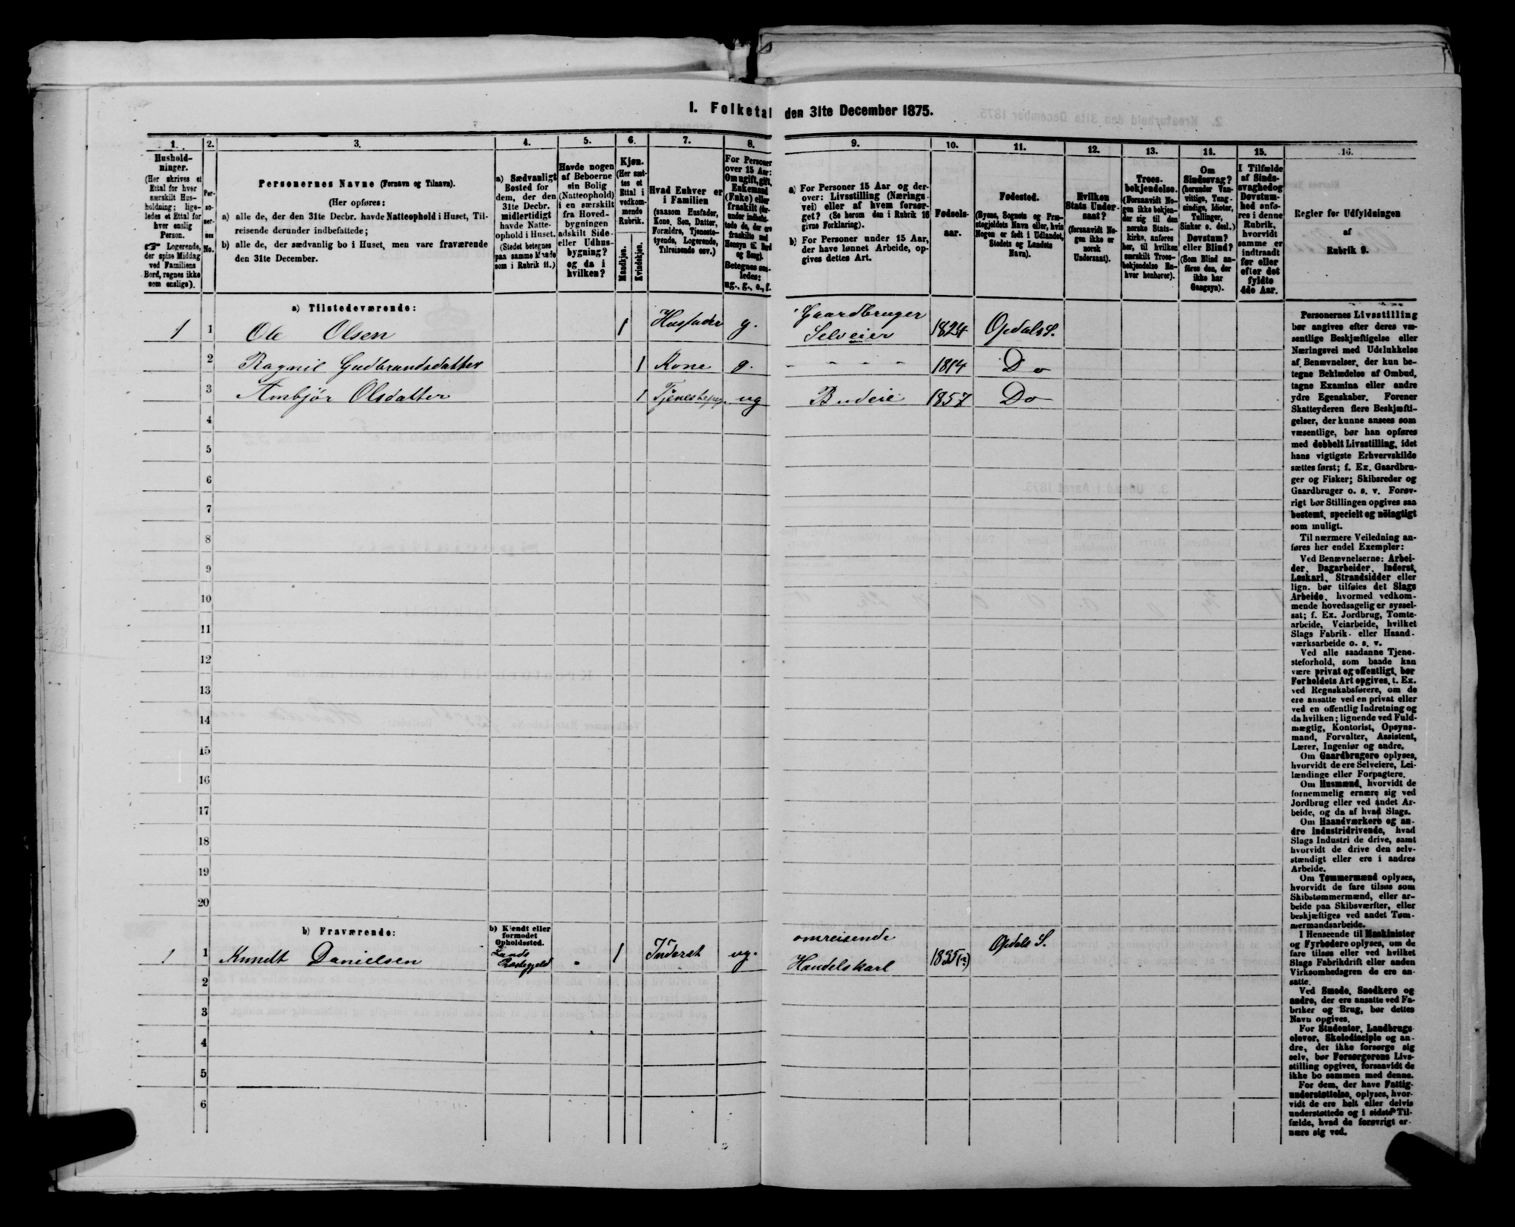 1. Folketal den 31te December 1875.
1. 2. 3. 4. 5. 6. 7. 8. 9. 10. 11. 12. 13. 14. 15. 16.
Hushold-
ninger.
(Her skrives et
Ettal for hver
særskilt Hus-
holdning; lige-
ledes et Ettal for
hver enslig
Person.
☞ Logerende,
der spise Middag
ved Familiens
Bord, regnes ikke
som enslige).
Per-
so-
ner-
nes
No.
Personernes Navne (Fornavn og Tilnavn).
(Her opføres:
a) alle de, der den 31te Decbr. havde Natteophold i Huset, Til-
reisende derunder indbefattede;
b) alle de, der sædvanlig bo i Huset, men vare fraværende
den 31te December.
a) Sædvanligt
Bosted for
dem, der den
31te Decbr.
midlertidigt
havde Natte-
ophold i Huset.
(Stedet betegnes
paa samme Maade
som i Rubrik 11.)
Havde nogen
af Beboerne
sin Bolig
(Natteophold)
i en særskilt
fra Hoved-
bygningen
adskilt Side-
eller Udhus-
bygning?
og da i
hvilken?
Kjøn.
(Her sæt-
tes et
Ettal i
vedkom-
mende
Rubrik.
Mandkjøn.
Kvindekjøn.
Hvad Enhver er
i Familien
(saasom Husfader,
Kone, Søn, Datter,
Forældre, Tjeneste-
tyende, Logerende,
Tilreisende osv.)
For Personer
over 15 Aar:
Om ugift, gift,
Enkemand
(Enke) eller
fraskilt
Betegnes saa-
ledes:
ug., g., e., f.
a) For Personer 15 Aar og der-
over: Livsstilling (Nærings-
vei) eller af hvem forsør-
get? (Se herom den i Rubrik 16
givne Forklaring).
b) For Personer under 15 Aar,
der have lønnet Arbeide, op-
gives dettes Art.
Fødsels-
aar.
Fødested.
(Byens, Sognets og Præ-
stegjeldets Navn eller, hvis
Nogen er født i Udlandet,
Stedets og Landets
Navn).
Hvilken
Stats Under-
saat?
(forsaavidt No-
gen ikke er
norsk
Undersaat).
Troes-
bekjendelse.
(Forsaavidt No-
gen ikke bekjen-
der sig til den
norske Stats-
kirke, anføres
her, til hvilken
særskilt Troes-
bekjendelse En-
hver henhører).
Om
Sindssvag?
(herunder Van-
vittige, Tung-
sindige, Idioter,
Tullinger,
Sinker o. desl.)
Døvstum?
eller Blind?
(Som Blind an-
føres den, der
ikke har
Gangsyn).
I Tilfælde
af Sinds-
svaghed og
Døvstum-
hed anfø-
res i denne
Rubrik,
hvorvidt
samme er
indtraadt
før eller
efter det
fyldte
4de Aar.
Regler for Udfyldningen
af
Rubrik 9.
a) Tilstedeværende:
1 1 Ole Olsen 1 Husfader g. Gaardbruger Selveier 1824 Opdals S.
2 Ragnil Gudbrandsdatter 1 Kone g. - - - 1814 Do
3 Ambjør Olsdatter 1 ug Budeie 1857 Do
4
5
6
7
8
9
10
11
12
13
14
15
16
17
18
19
20
b) Fraværende:
b) Kjendt eller
formodet
Opholdssted.
1 1 Knudt Danielsen 1 Inderst ug. omreisende Handelskarl Opdals S.
2
3
4
5
6
Personernes Livsstilling
bør angives efter deres væ-
sentlige Beskjæftigelse eller
Næringsvei med Udelukkelse
af Benævnelser, der kun be-
tegne Beklædelse af Ombud,
tagne Examina eller andre
ydre Egenskaber. Forener
Skatteyderen flere Beskjæfti-
gelser, der kunne ansees som
væsentlige, bør han opføres
med dobbelt Livsstilling, idet
hans vigtigste Erhvervskilde
sættes først; f. Ex. Gaardbru-
ger og Fisker; Skibsreder og
Gaardbruger o. s. v. Forøv-
rigt bør Stillingen opgives saa
bestemt, specielt og nøiagtigt
som muligt.
Til nærmere Veiledning an-
føres her endel Exempler:
Ved Benævnelserne: Arbei-
der, Dagarbeider, Inderst,
Løskarl, Strandsidder eller
lign. bør tilføies det Slags
Arbeide, hvormed vedkom-
mende hovedsagelig er syssel-
sat; f. Ex. Jordbrug, Tomte-
arbeide, Veiarbeide, hvilket
Slags Fabrik- eller Haand-
værksarbeide o. s. v.
Ved alle saadanne Tjene-
steforhold, som baade kan
være privat og offentligt, bør
Forholdets Art opgives, t. Ex.
ved Regnskabsførere, om de
ere ansatte ved en privat eller
ved en offentlig Indretning og
da hvilken; lignende ved Fuld-
mægtig, Kontorist, Opsyns-
mand, Forvalter, Assistent,
Lærer, Ingeniør og andre.
Om Gaardbrugere oplyses,
hvorvidt de ere Selveiere, Lei-
lændinge eller Forpagtere.
Om Husmænd, hvorvidt de
fornemmelig ernære sig ved
Jordbrug eller ved andet Ar-
beide, og da af hvad Slags.
Om Haandværkere og an-
dre Industridrivende, hvad
Slags Industri de drive, samt
hvorvidt de drive den selv-
stændigt eller ere i andres
Arbeide.
Om Tømmermænd oplyses,
hvorvidt de fare tilsøs som
Skibstømmermænd, eller ar-
beide paa Skibsværfter, eller
beskjæftiges ved andet Tøm-
mermandsarbeide.
I Henseende til Maskinister
og Fyrbødere oplyses, om de
fare tilsøs eller ved hvilket
Slags Fabrikdrift eller anden
Virksomhedsgren de ere an-
satte.
Ved Smede, Snedkere og
andre, der ere ansatte ved Fa-
briker og Brug, bør dettes
Navn opgives.
For Studenter, Landbrugs-
elever, Skoledisciple og an-
dre, der ikke forsørge sig
selv, bør Forsørgerens Livs-
stilling opgives, forsaavidt de
ikke bo sammen med denne.
For dem, der have Fattig-
understøttelse, oplyses, hvor-
vidt de ere helt eller delvis
understøttede og i sidste Til-
fælde, hvad de forøvrigt er-
nære sig ved.